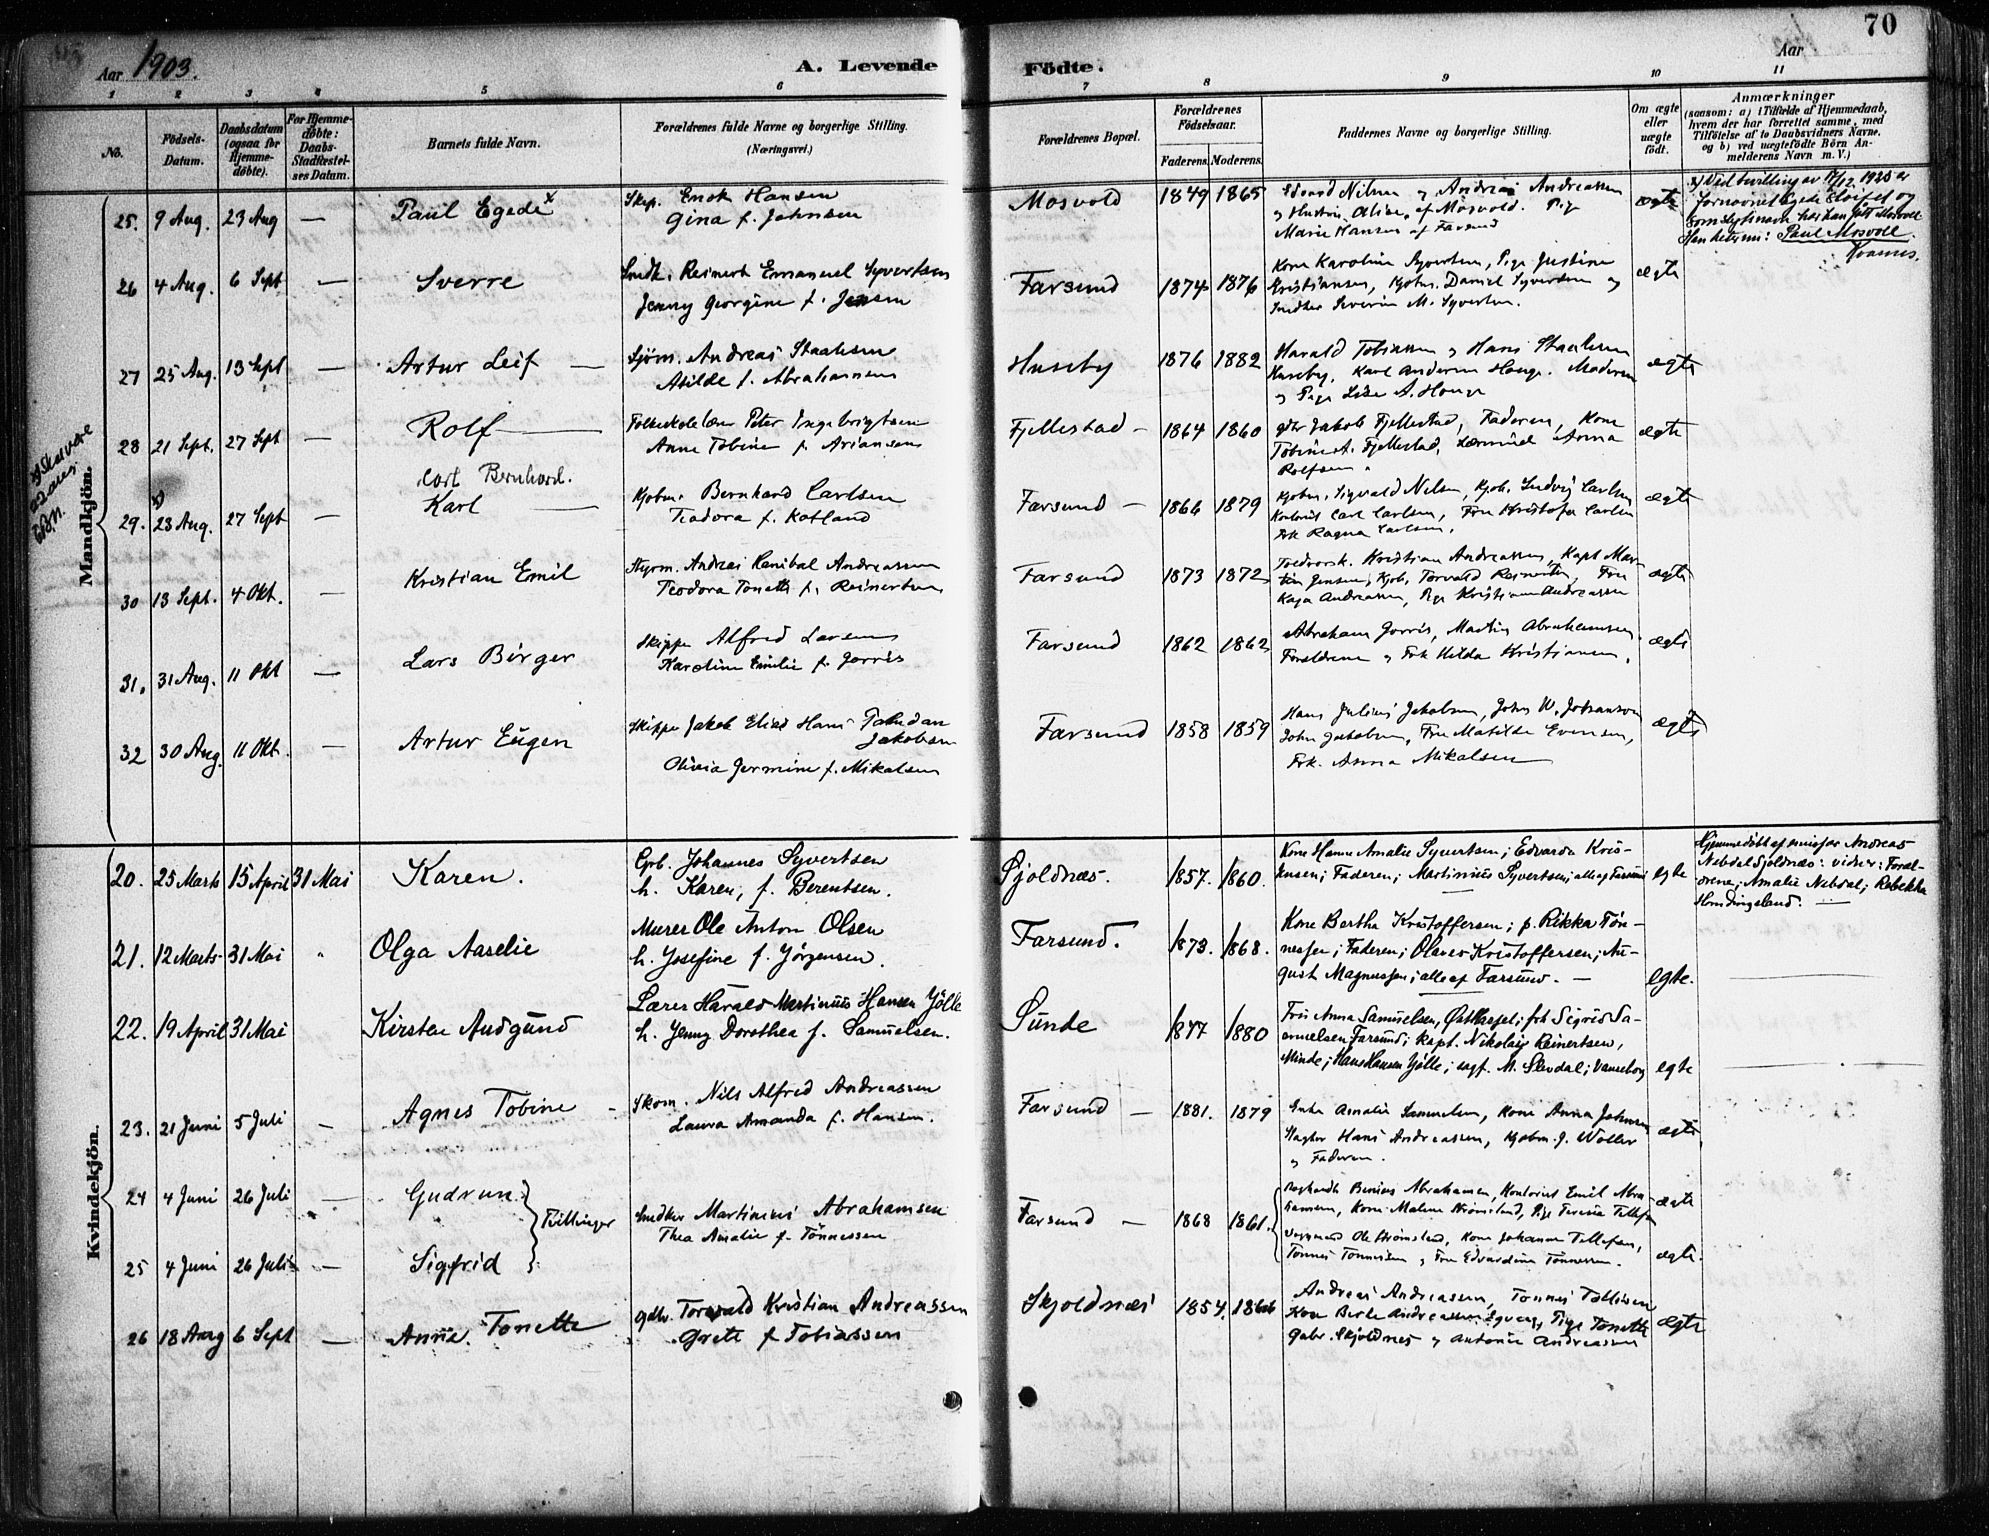 70
Aar 1903.
A. Levende Födte.
Aar
1 2 3 4 5 6 7 8 9 10 11
No.
Födsels-Datum.
Daabsdatum (ogsaa for Hjemme-döbte).
For Hjemme-döbte: Daabs-Stadfæstel-ses Datum.
Barnets fulde Navn.
Forældrenes fulde Navne og borgerlige Stilling. (Næringsvei.)
Forældrenes Bopæl.
Forældrenes Födselsaar.
Faderens. Moderens.
Faddernes Navne og borgerlige Stilling.
Om ægte eller uægte födt.
Anmærkninger
(saasom: a) i Tilfælde af Hjemmedaab,
hvem der har forrettet samme, med
Tilföielse af to Daabsvidners Navne,
og b) ved uægtefödte Börn An-
melderens Navn m. V.)
Mandkjön.
25. 9 Aug. 23 Aug — Paul Egede x
Skip. Enok Hansen
Gina f. Johnsen
Mosvold 1849 1865
Edvard Nilsen og Andreas Andreassen
og Hustru Alise, af Mosvold. Pige
Marie Hansen af Farsund
ægte
x) Ved bevilling av 17/12 1925 er
fornavnet Egede sløifet og
som slegtsnavn har han fått Mosvold
Han heter nu: Paul Mosvold.
26 4 Aug. 6 Sept — Sverre
Smdk. Reinert Emanuel Syvertsen
Jenny Georgine f. Jensen
Farsund 1874 1876
Kone Karoline Syvertsen, Pige Justine
Kristiansen, Kjøbm. Daniel Syvertsen og
Snedker Severin M. Syvertsen.
ægte
27 25 Aug. 13 Sept — Artur Leif —
Sjøm. Andreas Staalesen
Asilde f. Abrahamsen
Huseby 1876 1882
Harald Tobiassen og Hans Staalesen
Huseby, Karl Andersen Hauge. Moderen
og Pige Lise A. Hauge
ægte
28 21 Sept. 27 Sept — Rolf —
Folkeskolelærer Peter Ingebrigtsen
Anne Tobine f. Ariansen
Fjellestad — 1864 1860
Jakob Fjellestad, Faderen, Kone
Tobine A. Fjellestad, Anna
Rolfsen
ægte
Carl Bernhard.
29. x) 23 Aug. 27 Sept — Karl —
Kjøbm. Bernhard Carlsen
Teodora f. Kotland
Farsund — 1866 1879
Kjøbm. Sigvald Nilsen, Kjøb. Ludvig Carlsen
Kontorist Carl Carlsen, Fru Kristofa Carlsen
Frk Ragna Carlsen.
ægte
30 13 Sept. 4 Okt. — Kristian Emil
Styrm. Andreas Hanibal Andreassen
Teodora Tonette f. Reinertsen
Farsund 1873 1872
Kristian Andreassen, Kapt Mar-
tin Jensen, Kjøb. Torvald Reinertsen, Fru
Kaja Andreassen, Pige Kristiane Andreassen
ægte
31. 31 Aug. 11 Okt — Lars Birger
Skipper Alfred Larsen
Karoline Emilie f. Jorris
Farsund 1862 1862
Abraham Jorris, Martin Abrahamsen,
Forældrene og Frk Hilda Kristiansen.
ægte
32 30 Aug. 11 Okt. — Artur Eugen
Skipper Jakob Elias Hans Jakobsen
Olivia Jermine f. Mikalsen
Farsund 1858 1859
Hans Julius Jakobsen, John W. Johanson
John Jakobsen, Fru Matilde Evensen,
Frk. Anna Mikalsen
ægte
Kvindekjön.
20. 25 Marts 15 April 31 Mai Karen.
Grb. Johannes Syvertsen
h. Karen, f. Berentsen.
Sjoldnæs. 1857. 1860.
Kone Hanne Amalie Syvertsen; Edvarda Kris-
tensen; Faderen; Martinius Syvertsen; alle af Farsund
egte
Hjemmedøbt af Andreas
Nebdal Sjoldnæs: vidner: Foræl-
drene; Amalie Nebdal; Rebekka
21. 12 Marts 31 Mai " Olga Aaselie
Murer Ole Anton Olsen
h. Josefine f. Jörgensen.
Farsund. 1873. 1868.
Kone Bertha Kristoffersen; p. Rikka Tön-
nessen; Faderen; Olaves Kristoffersen; Au-
gust Magnussen; alle af Farsund. —
egte.
22. 19 April 31 Mai Kirsten Audgund
Lærer Harald Martinius Hansen Jölle
h. Jenny Dorothea f. Samuelsen.
Sunde 1877 1880
Fru Anna Samuelsen, Østhassel; frk Sigrid Sa-
muelsen, Farsund; kapt. Nikolaig Reinertsen,
Minde; Hans Hansen Jölle; sogf. M. Slevdal; Vanseborg
egte
23. 21 Juni 5 Juli — Agnes Tobine —
Skom. Nils Alfred Andreassen
Laura Amanda f. Hansen.
Farsund — 1881. 1879
Enke Amalie Samuelsen, Kone Anna Johnsen
Slagter Hans Andreassen, Kjøbm. J. Woller
og Faderen.
ægte
24 4 Juni 26 Juli — Gudrun
25 4 Juni 26 Juli — Sigfrid
Tvillinger
Snedker Martinius Abrahamsen
Thea Amalie f. Tönnessen
Farsund — 1868 1861.
Benius Abrahamsen, Kontorist Emil Abra-
hamsen, Kone Malene Strømsland, Pige Teresia Tellefsen
Ole Strømsland, Kone Johanne Tellefsen,
Tönnes Tönnessen og Fru Edvardine Tönnessen.
ægte
ægte.
26 18 Aug 6 Sept — Anna Tonette
Gdbr. Torvald Kristian Andreassen
Grete f Tobiassen
Skjoldnæs 1854. 1866
Andreas Andreassen, Tönnes Tollisen
Kone Berte Andreassen, Pige Tonette
Gabr. Skjoldnes og Antonie Andreassen
ægte